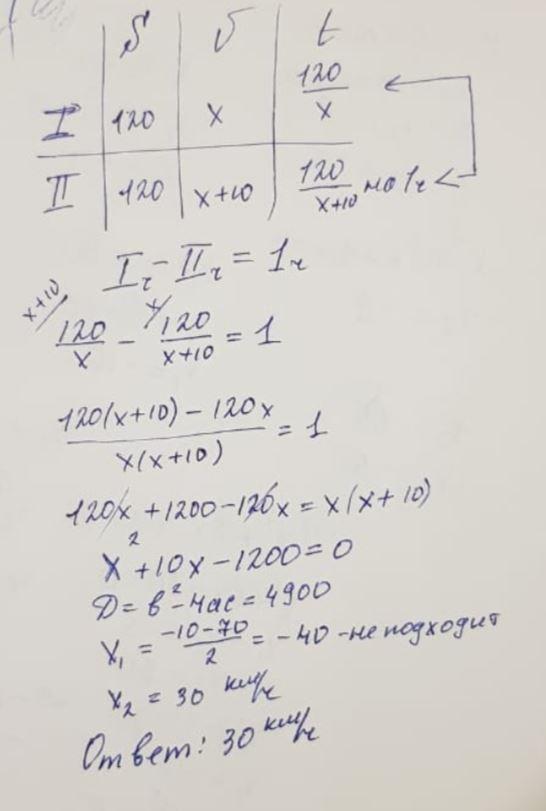 S v t
I 120 x 120/x
II 120 x+10 120/(x+10) на 1ч
Iч - IIч = 1ч
x+10/ 120/x - x/ 120/(x+10) = 1
(120(x+10) - 120x)/(x(x+10)) = 1
120x + 1200 - 120x = x(x+10)
x² + 10x - 1200 = 0
D = в² - 4ac = 4900
x₁ = (-10-70)/2 = -40 - не подходит
x₂ = 30 км/ч
Ответ: 30 км/ч